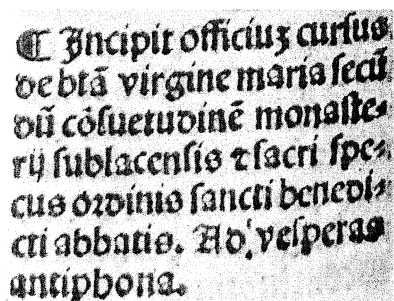 ¶ Incipit officiuꝫ curſus
de btā virgine maria ſecū
dū cōſuetudinē monaſte⸗
rij ſublacenſis ⁊ ſacri ſpe⸗
cus ordinis ſancti benedi⸗
cti abbatis. Ad veſperas
antiphona.